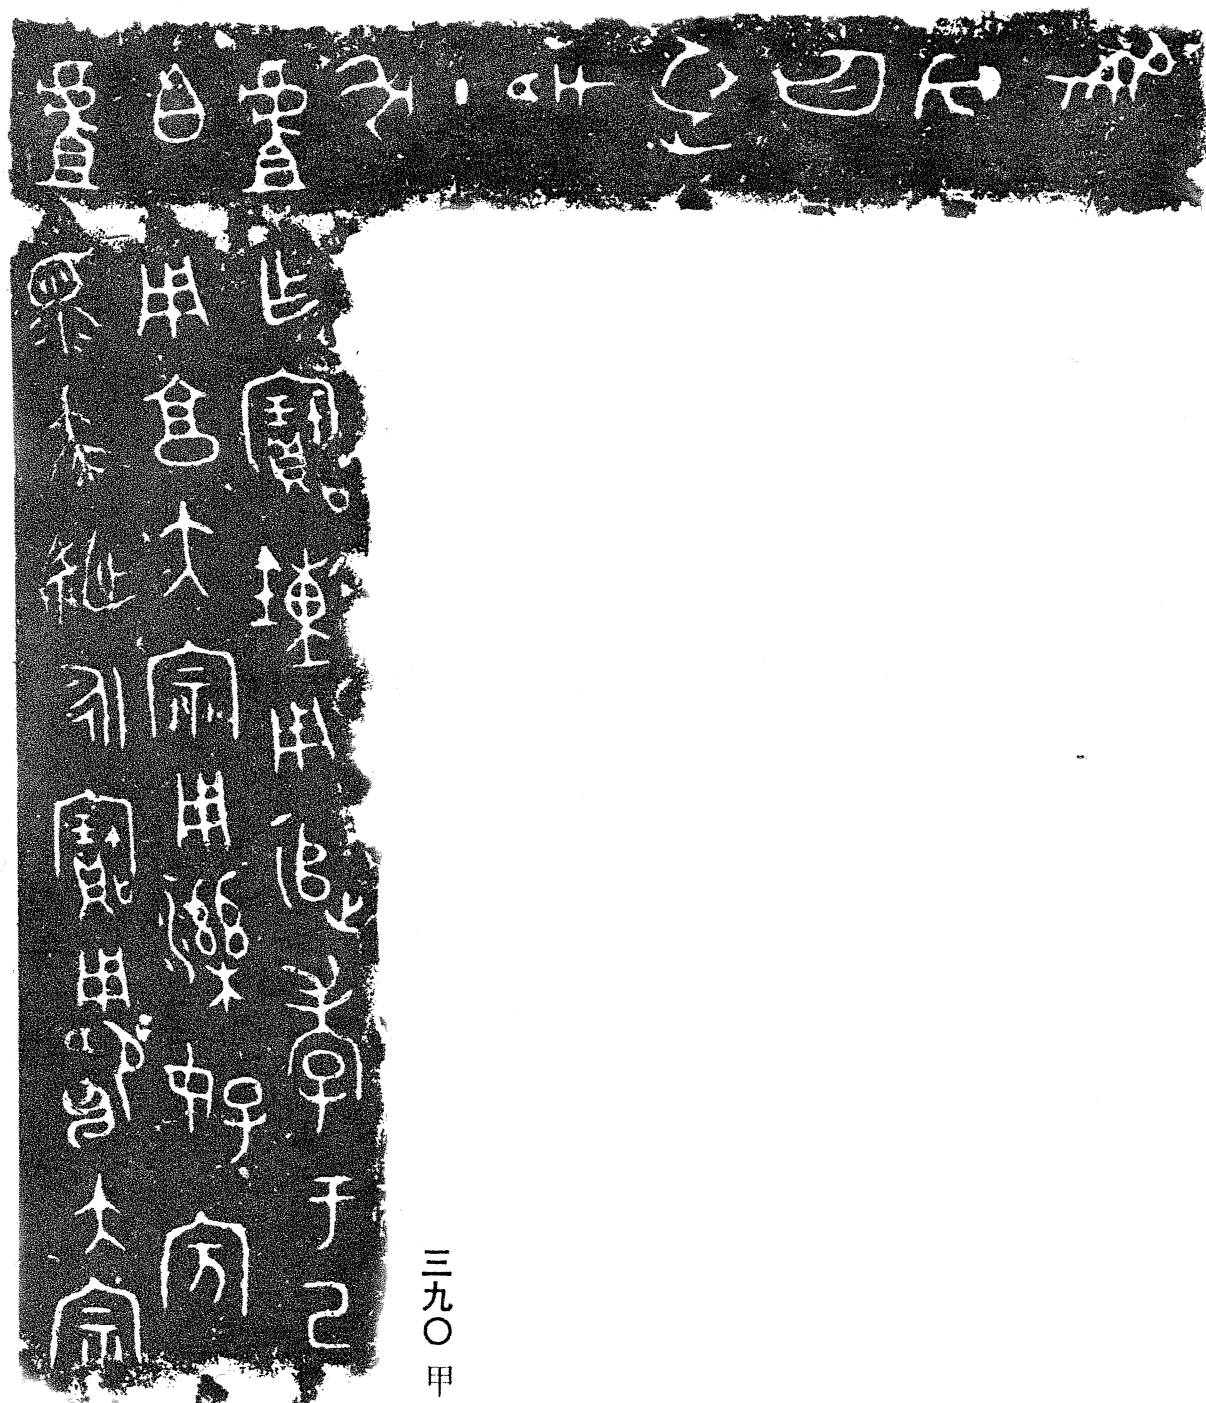 隹正月初吉丁亥
虘乍寶鐘用追孝于己
白用享大宗用濼好賓
虘眔蔡姬永寶用卲大宗
三九〇 甲